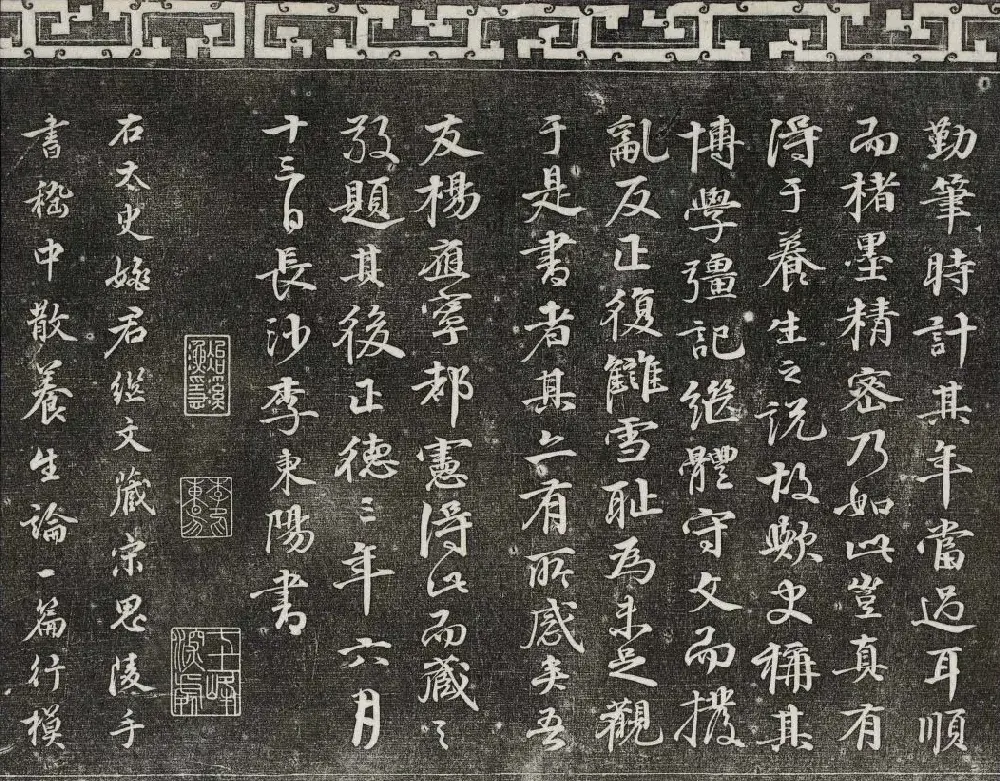 勤筆時計其年當過耳順
而楮墨精密乃如此豈真有
得于養生之説故歟史稱其
博學彊記繼體守文而撥
亂反正復讎雪耻為未足觀
于是書者其亦有所感矣吾
友楊應寧都憲得此而藏之
敬題其後正德三年六月
十三日長沙李東陽書
右太史姚君繼文藏宋思陵手
書嵇中散養生論一篇行模